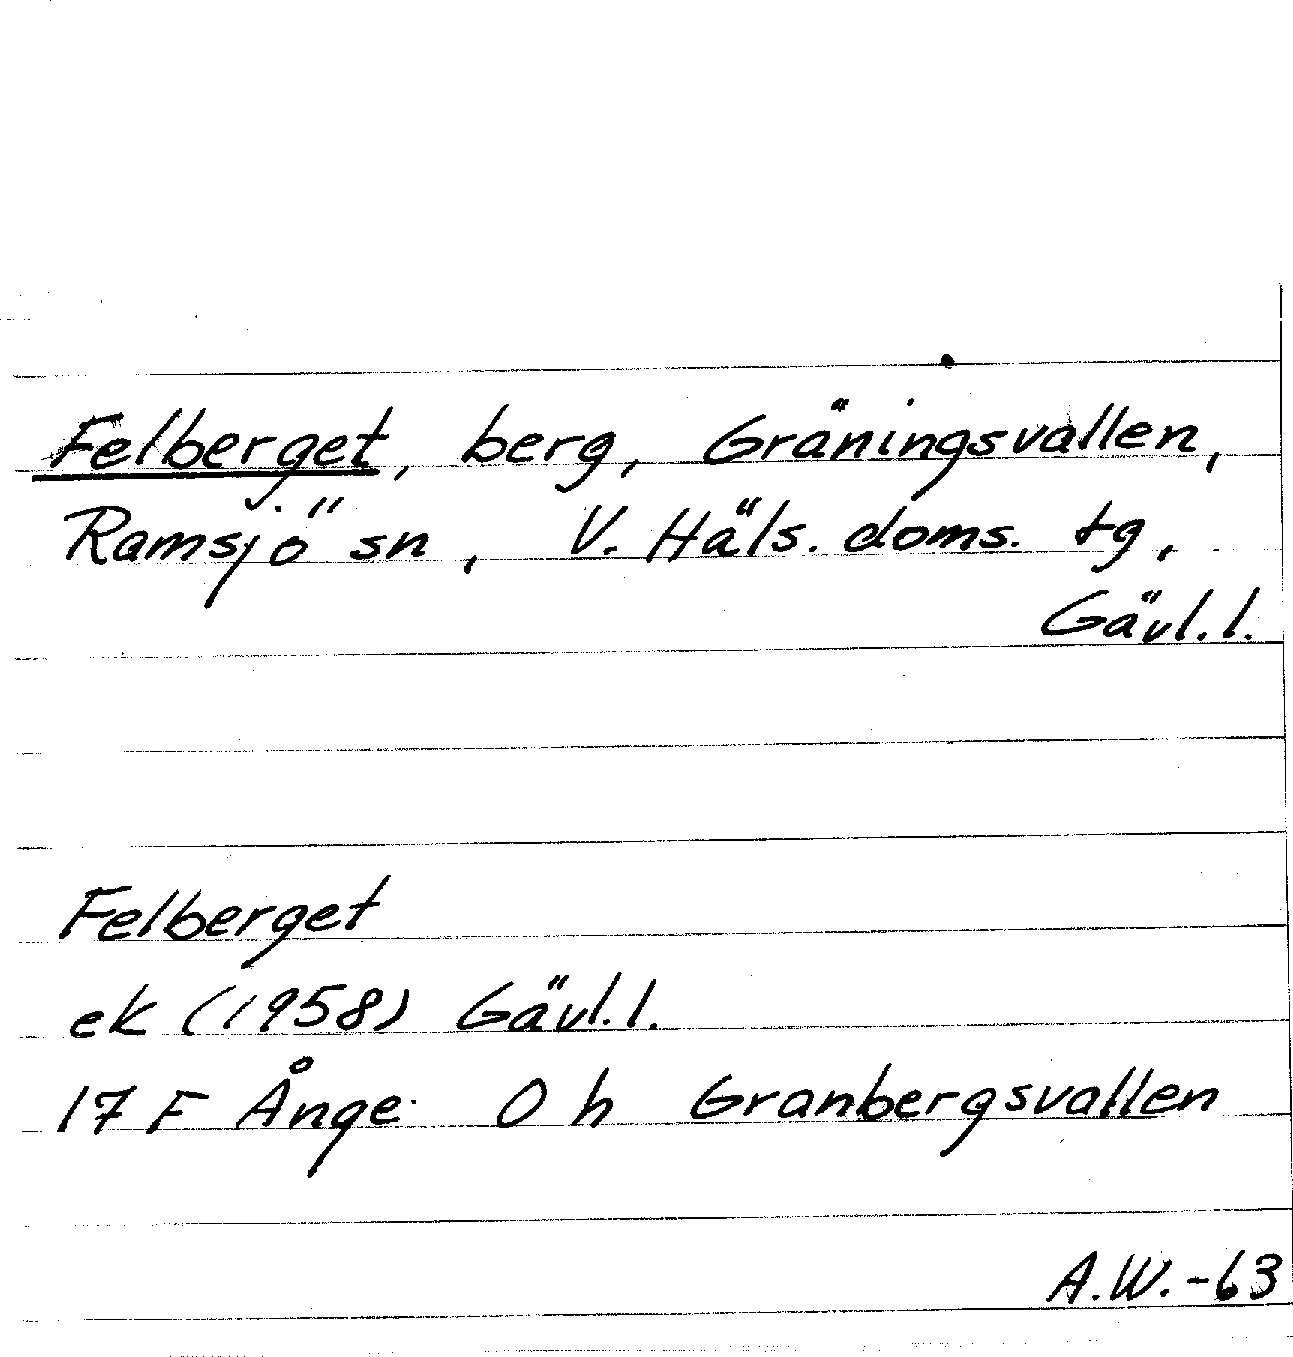 Felberget, berg, Gräningsvallen,
Ramsjö sn, V. Häls. doms. tg,
Gävl. l.
Felberget
ek (1958) Gävl. l.
17 F Ånge 0 h Granbergsvallen
A.W. -63